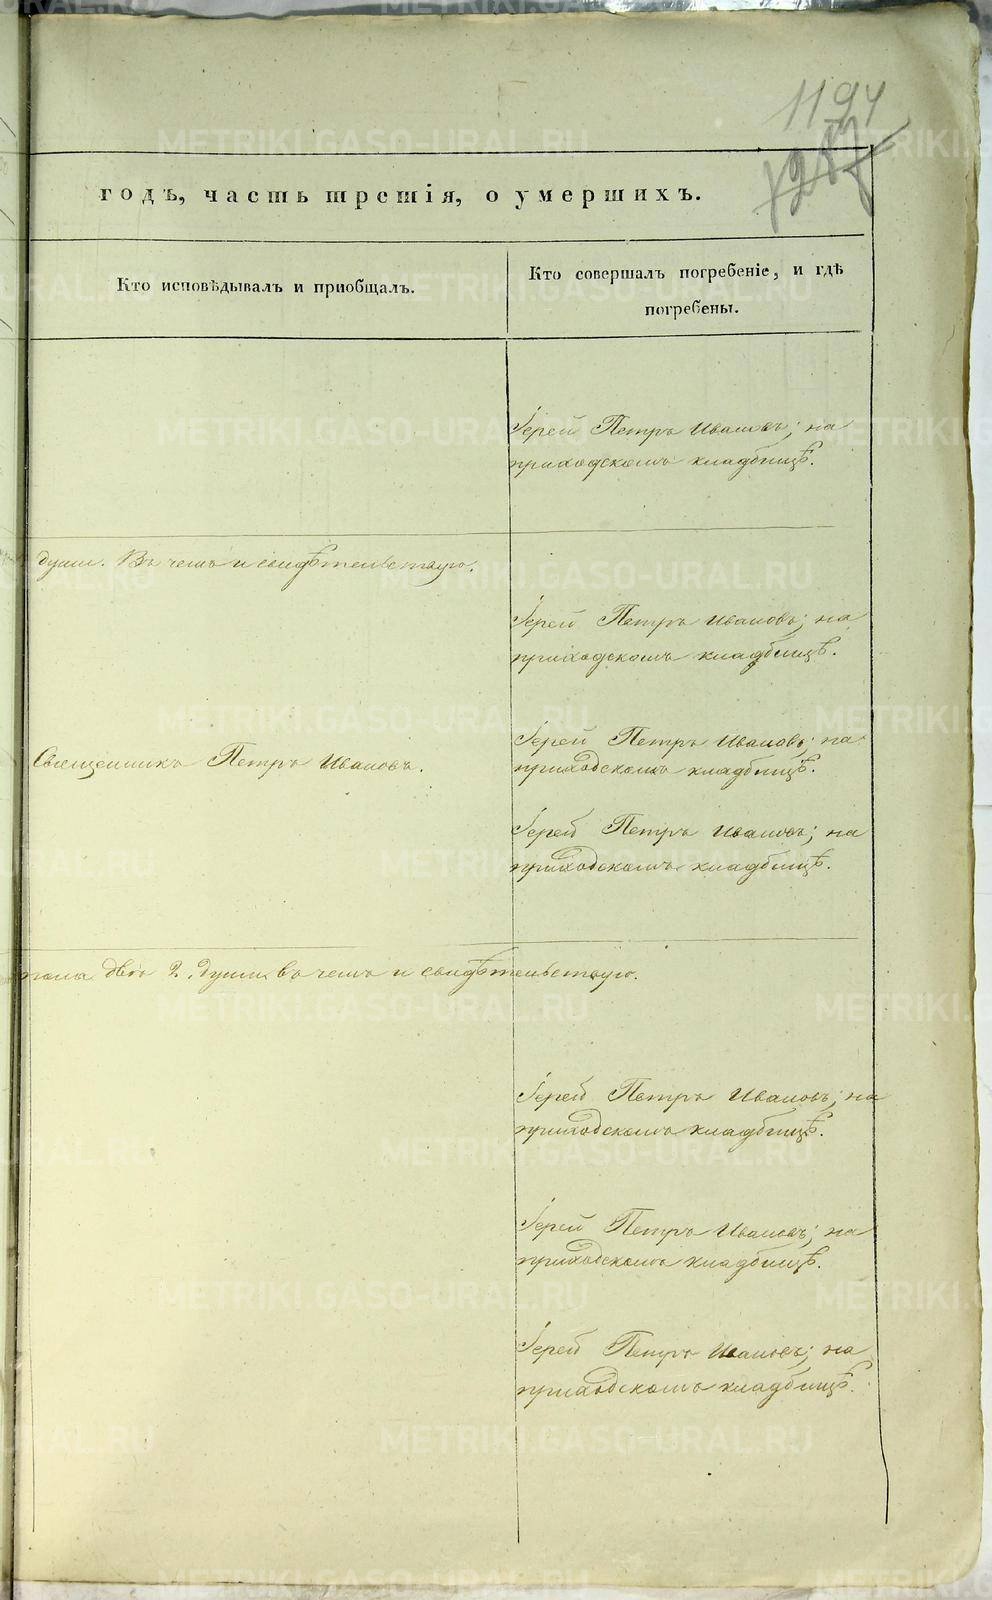 1194
годъ, часть третія, о умершихъ.
Кто исповѣдывалъ и пріобщалъ.
Кто совершалъ погребеніе, и гдѣ
погребены.
Іерей Петръ Ивановъ; на
приходскомъ кладбищѣ.
души. Въ чемъ и свидѣтельствую.
Іерей Петръ Ивановъ; на
приходскомъ кладбищѣ.
Священникъ Петръ Ивановъ.
Іерей Петръ Ивановъ; на
приходскомъ кладбищѣ.
Іерей Петръ Ивановъ; на
приходскомъ кладбищѣ.
пола двѣ 2. души, въ чемъ и свидѣтельствую.
Іерей Петръ Ивановъ; на
приходскомъ кладбищѣ.
Іерей Петръ Ивановъ; на
приходскомъ кладбищѣ.
Іерей Петръ Ивановъ; на
приходскомъ кладбищѣ.
METRIKI.GASO-URAL.RU